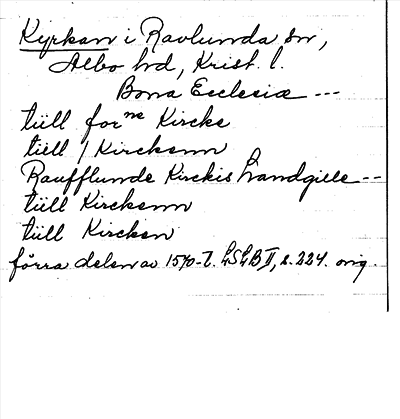 Kyrkan i Ravlunda sn,
Albo hd, Krist. l.
Bona Ecclesiæ ---
tiill forne Kircke
tiell / Kirckenn
Raufflunde Kirckis Landgille --
tiill Kirckenn
tiill Kircken
förra delen av 1570-t. LSLB II, s. 224. orig.